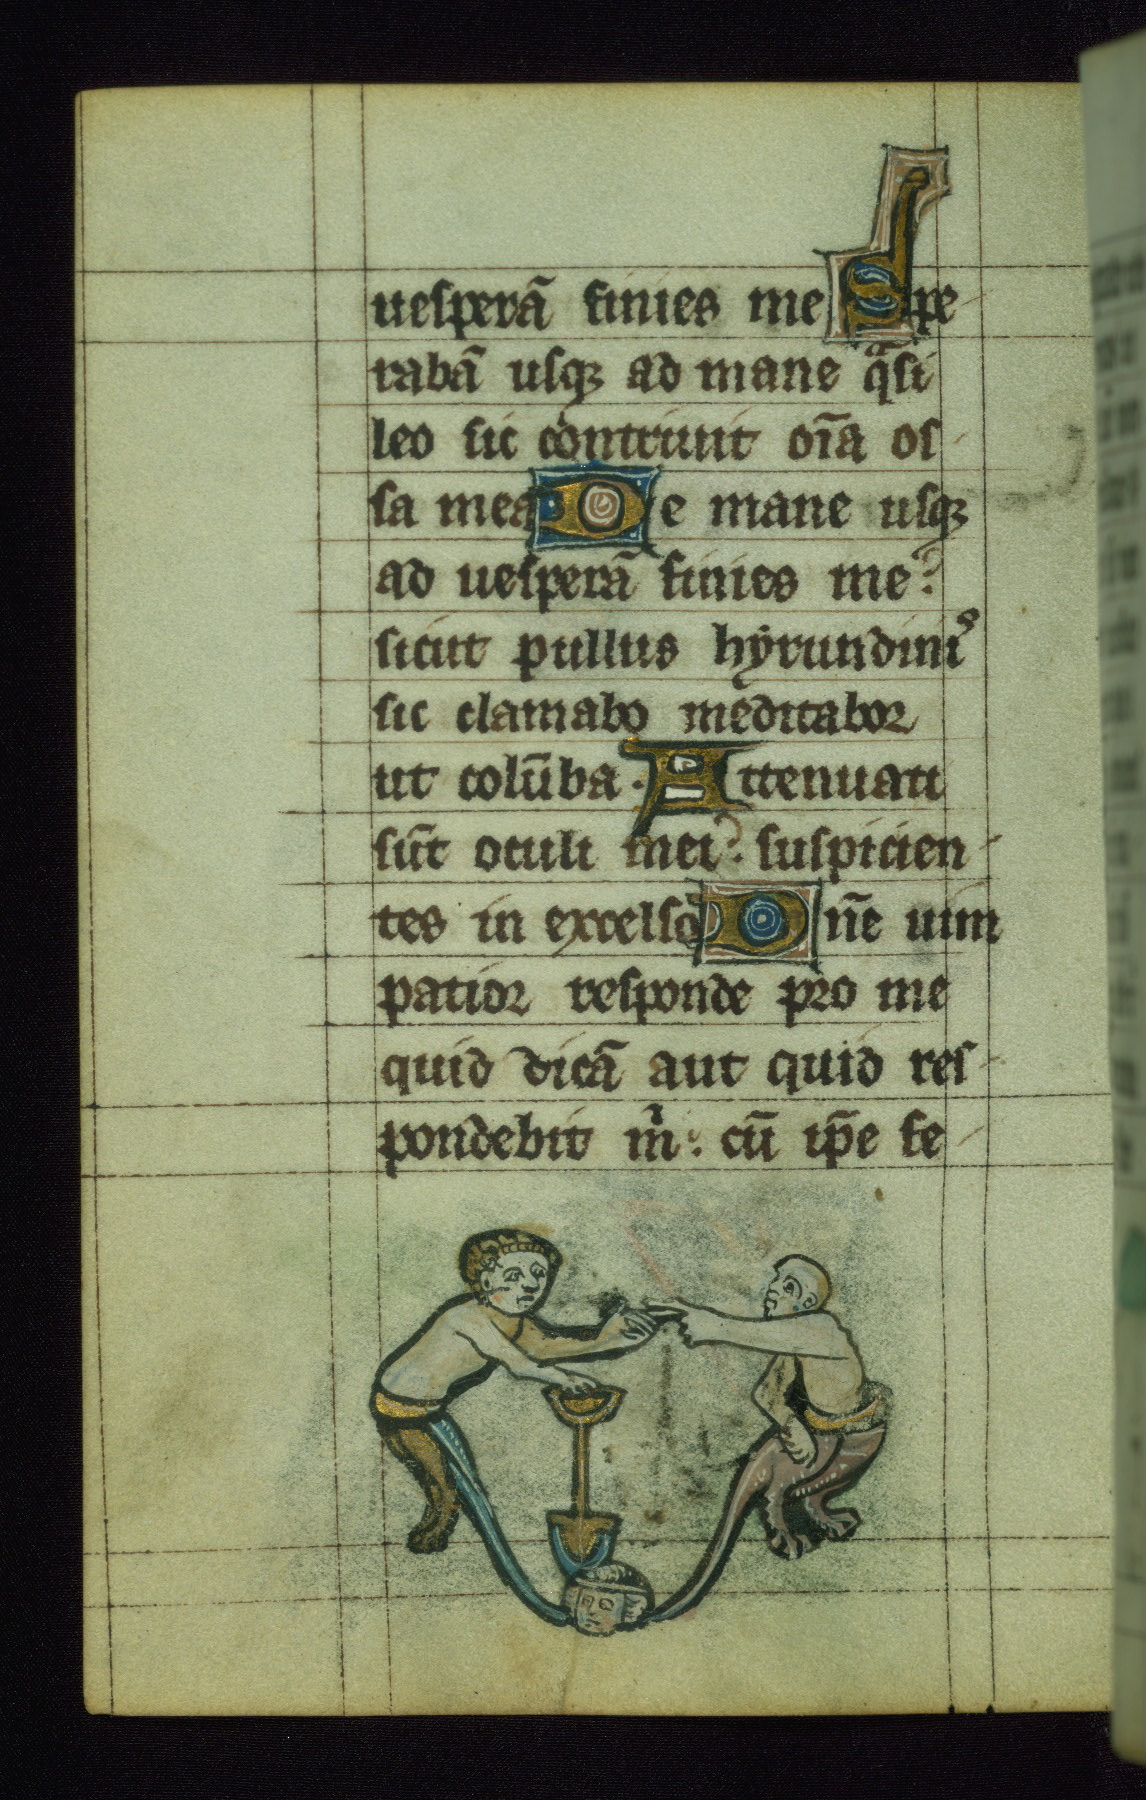 uesperã finies me Spe
rabã usqꝫ ad mane qͣsi
leo sic contriuit oĩa os
sa mea De mane usqꝫ
ad uesperã finies me:
sicut pullus hyrundinis
sic clamabo meditabor
ut colũba. Attenuati
sũt oculi mei: suspicien
tes in excelso Dñe uim
patior responde pro me
quid dicã aut quid res
pondebit mͥ: cũ ip̃e fe